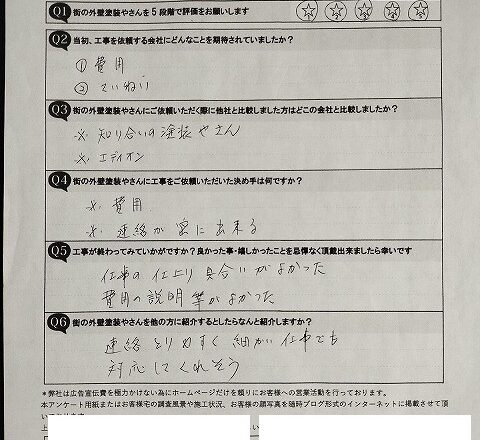 Q1 街の外壁塗装やさんを5段階で評価をお願いします
Q2 当初、工事を依頼する会社にどんなことを期待されていましたか？
① 費用
② ていねい
Q3 街の外壁塗装やさんにご依頼いただく際に他社と比較しました方はどこの会社と比較しましたか？
※ 知り合いの塗装やさん
※ エディオン
Q4 街の外壁塗装やさんに工事をご依頼いただいた決め手は何ですか？
※ 費用
※ 連絡が密に出来る
Q5 工事が終わってみていかがですか？良かった事・嬉しかったことを忌憚なく頂戴出来ましたら幸いです
仕事の仕上り具合いがよかった
費用の説明等がよかった
Q6 街の外壁塗装やさんを他の方に紹介するとしたらなんと紹介しますか？
連絡とりやすく細かい仕事でも
対応してくれそう
＊弊社は広告宣伝費を極力かけない為にホームページだけを頼りにお客様への営業活動を行っております。
本アンケート用紙またはお客様宅の調査風景や施工状況、お客様の顔写真を随時ブログ形式のインターネットに掲載させて頂